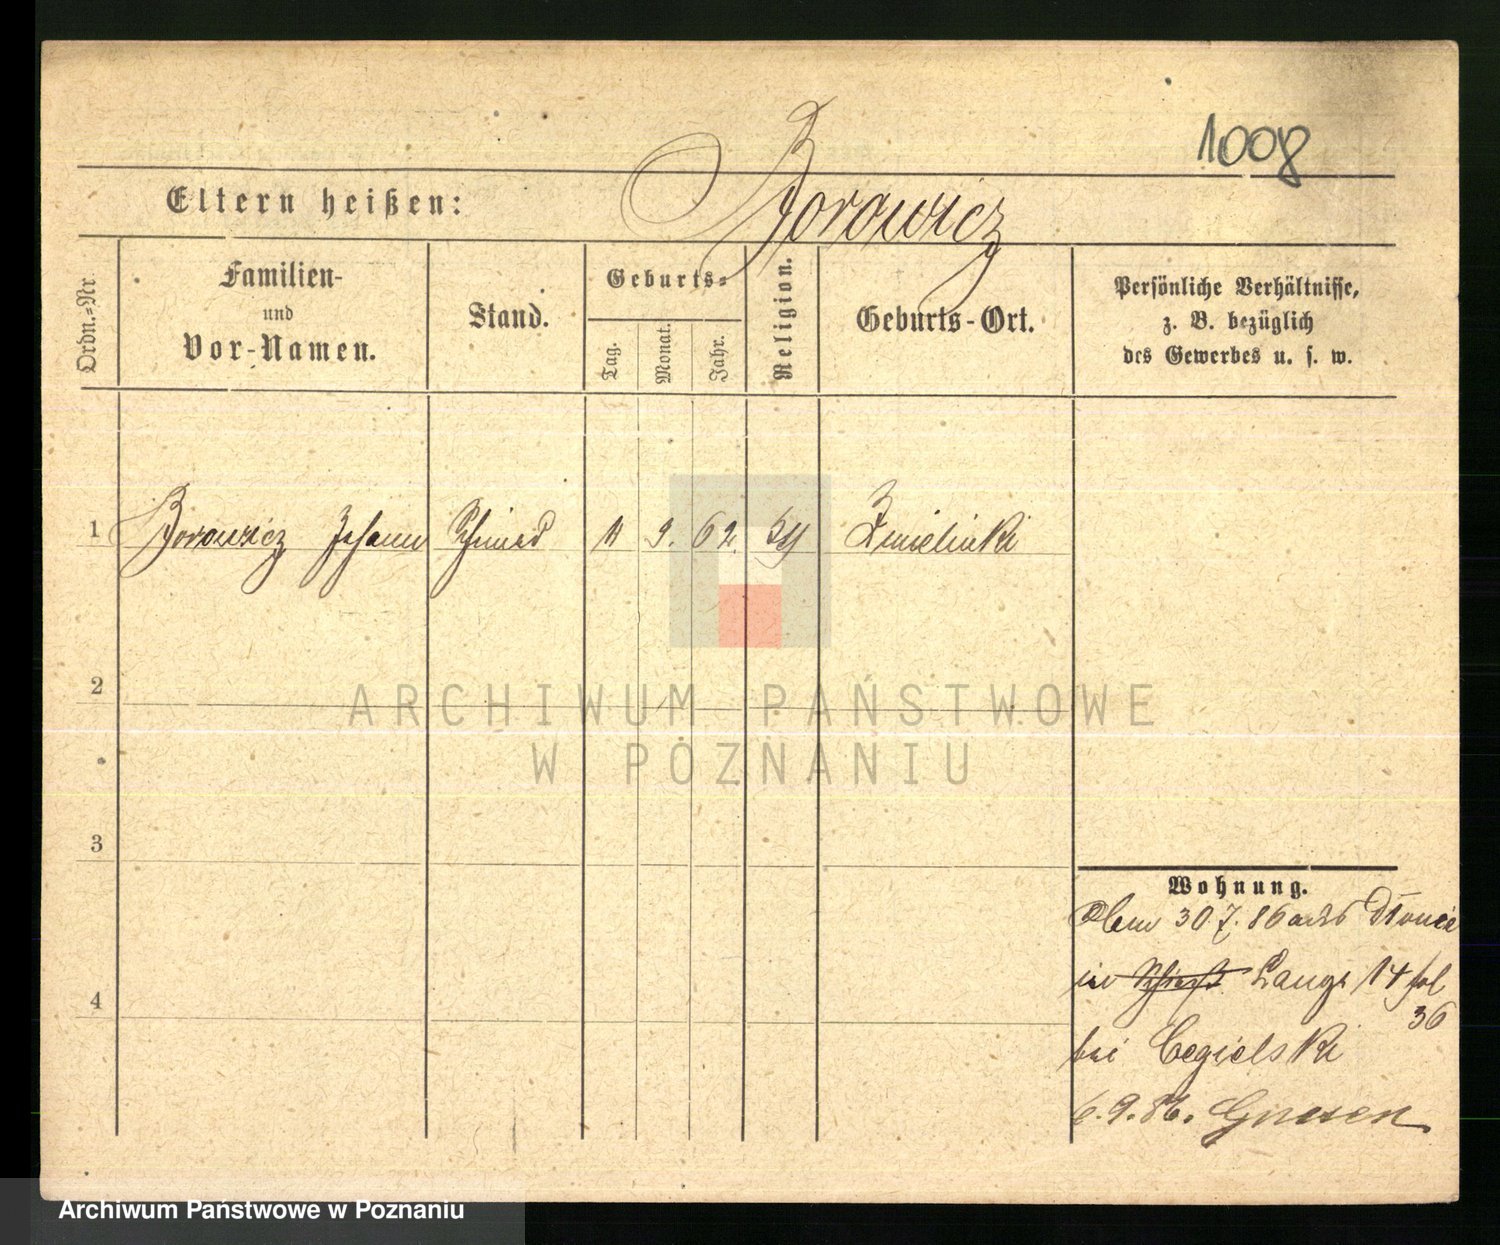 1008
Eltern heißen: Borowicz
Ordn.=Nr
Familien-
und
Vor-Namen.
Stand.
Geburts=
Tag.
Monat.
Jahr.
Religion.
Geburts-Ort.
Persönliche Verhältnisse,
z. B. bezüglich
des Gewerbes u. s. w.
1 Borowicz Johann Schmied 11 9. 62.
2
ARCHIWUM PAŃSTWOWE
W POZNANIU
3
4
Wohnung.
30.7.86 aus
in Lange 14 fol
36
bei Cegielski
6.9.86. Gnesen
Archiwum Państwowe w Poznaniu